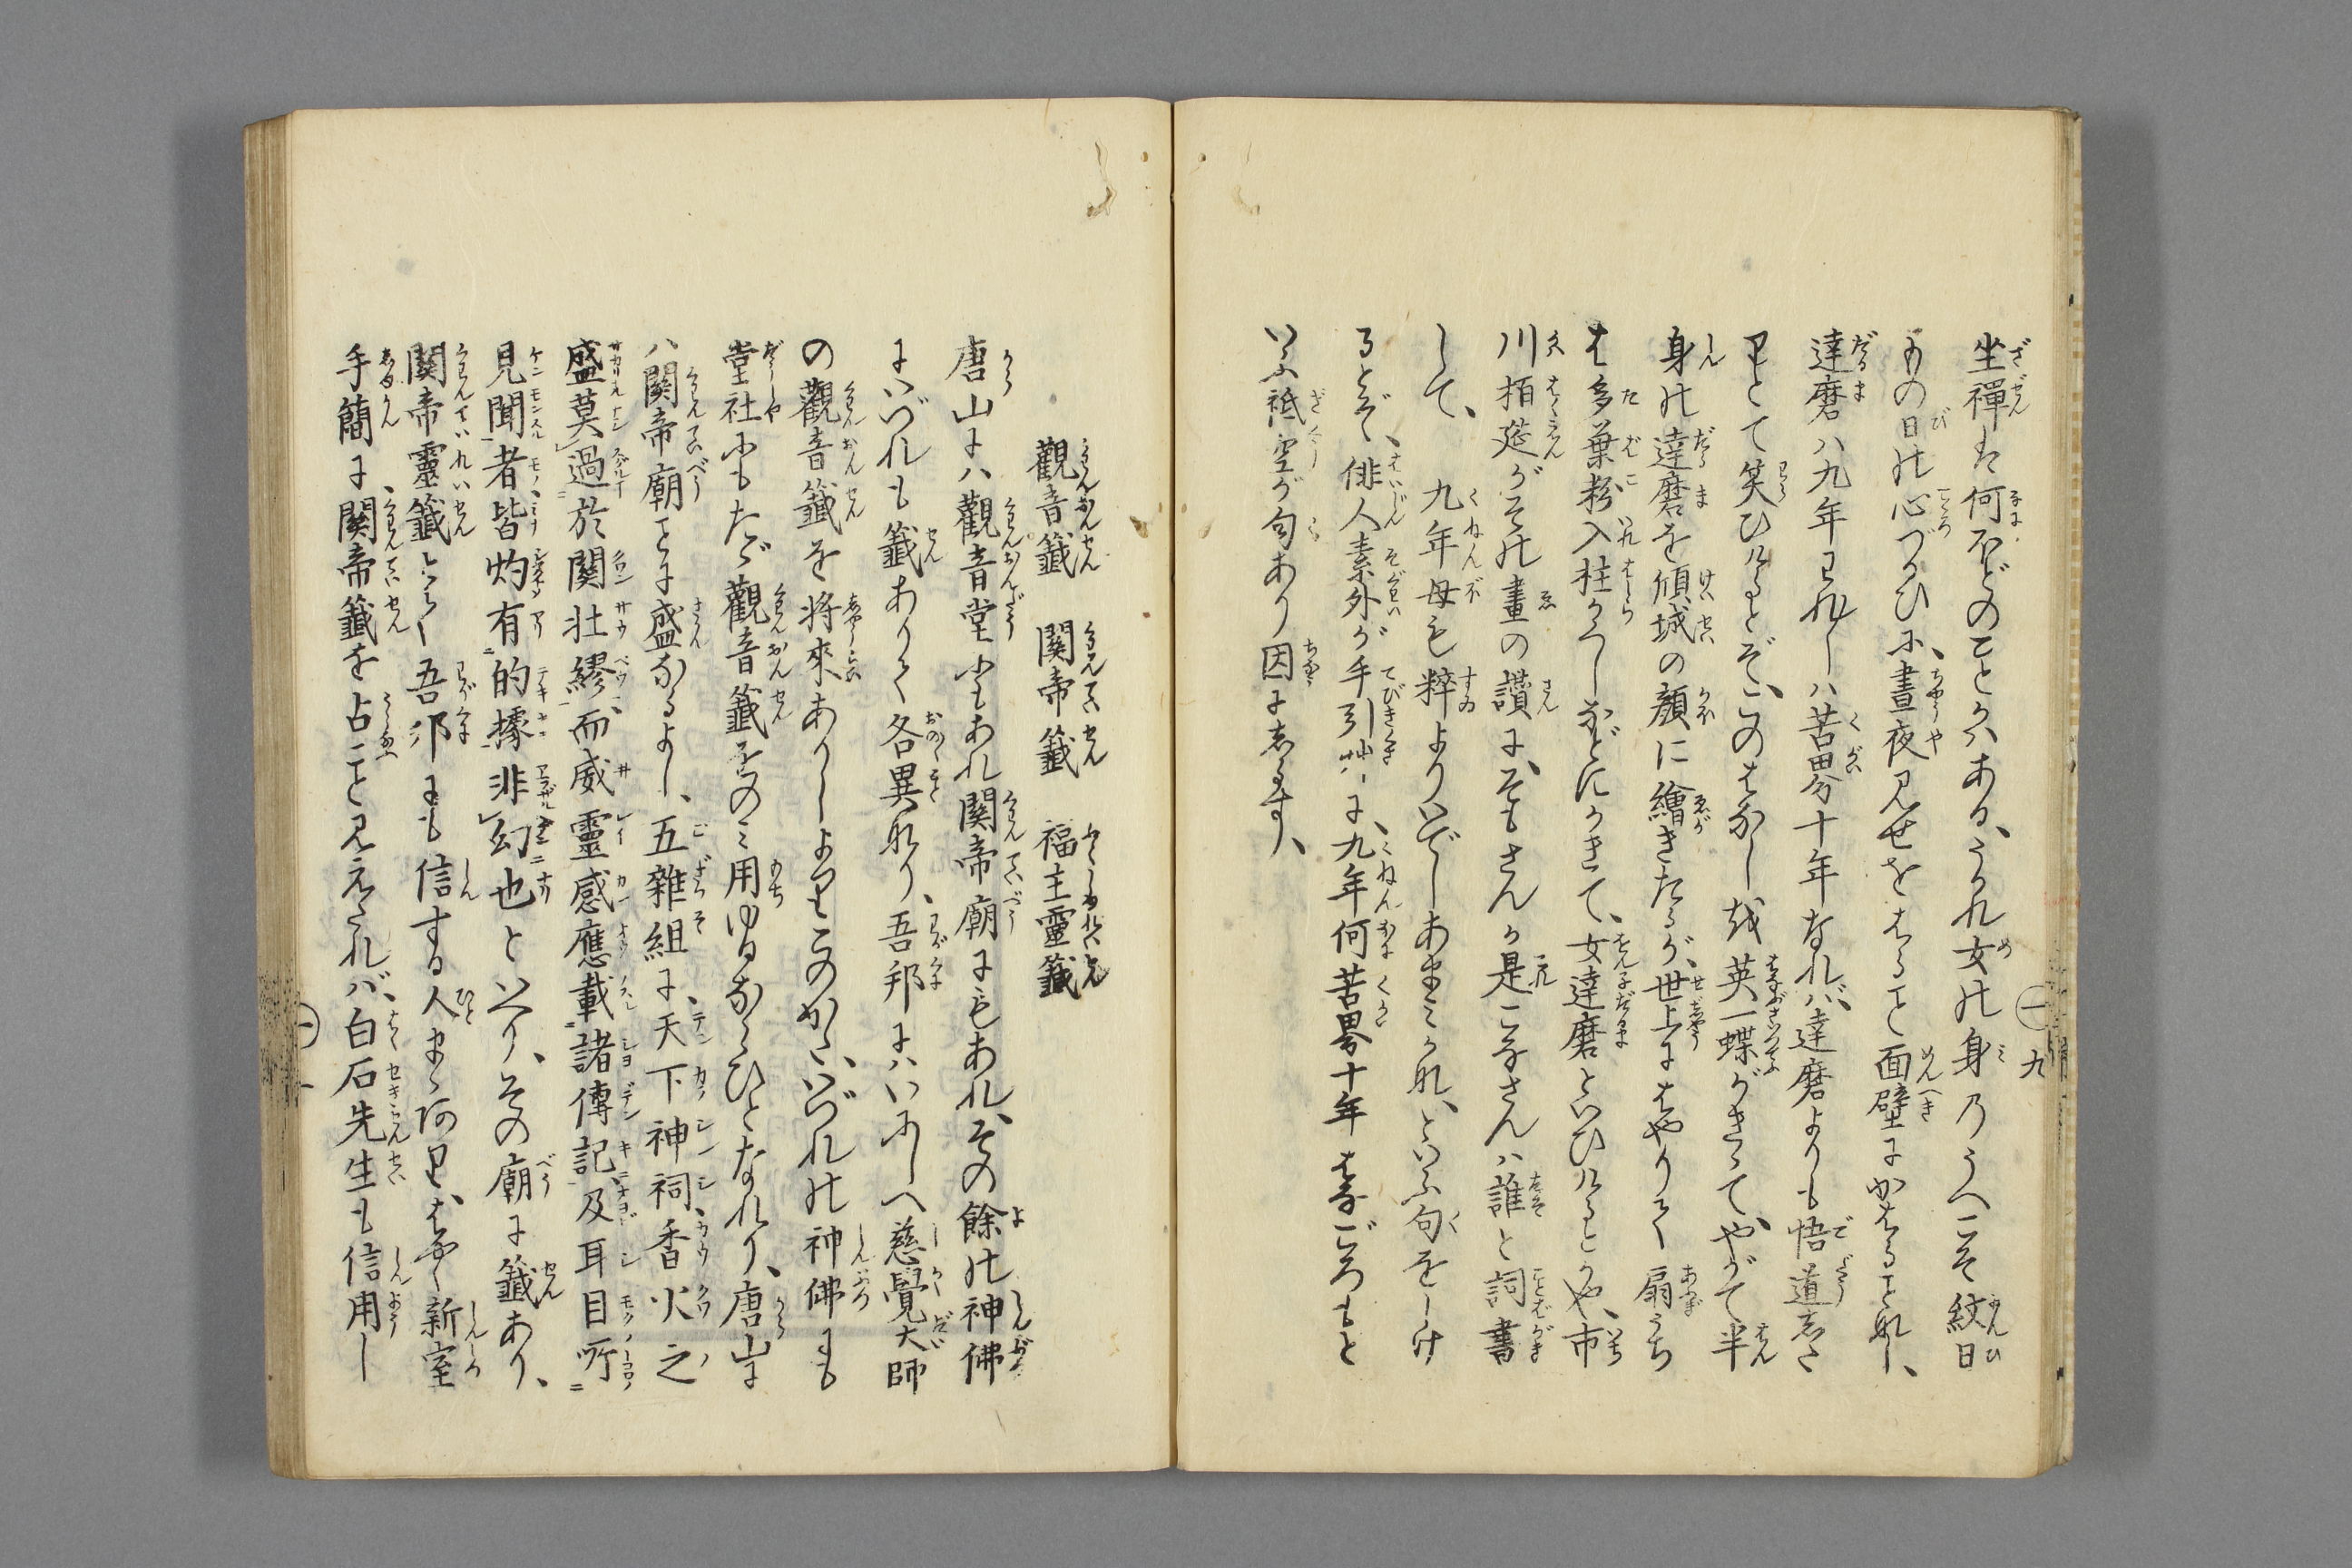 坐禪は何ほどのことかハある、うかれ女の身のうへこそ紋日
もの日の心づかひに、晝夜見せをはること面壁にかはることなし、
達磨ハ九年われ〳〵ハ苦界十年なれバ、達磨よりも悟道した
りとて笑ひけるとぞ、このはなしを英一蝶がきゝて、やがて半
身の達磨を傾城の顔に繪きたるが、世上にはやりて扇うち
は多葉粉入柱かくしなどにかきて、女達磨といひけるとかや、市
川栢莚がその畫の讃に、そもさんか是こなさんハ誰と詞書
して、 九年母も粹よりいでしあまみかな、といふ句をしけ
るとぞ、俳人素外が手引艸に、九年何苦界十年はなごろもと
いふ祗空が句あり因にしるす、
一 九
觀音籤 関帝籤 福主靈籤
唐山にハ觀音堂にもあれ関帝廟にもあれ、その餘の神佛
にいづれも籤ありて各異なり、吾邦にハいにしへ慈覺大師
の觀音籤を將來ありしよりこのかた、いづれの神佛にも
堂社にもたゞ觀音籤をのミ用ゆるならひとなれり、唐山に
ハ関帝廟ことに盛なるよし、五雜組に、天下神祠香火之
盛莫過於関壮繆而威靈感應載諸傳記及耳目所
見聞者皆灼有的據非幻也といへり、その廟に籤あり、
関帝靈籤といふ吾邦にも信する人まゝあり、はやく新室
手簡に関帝籤を占こと見えたれバ、白石先生も信用し